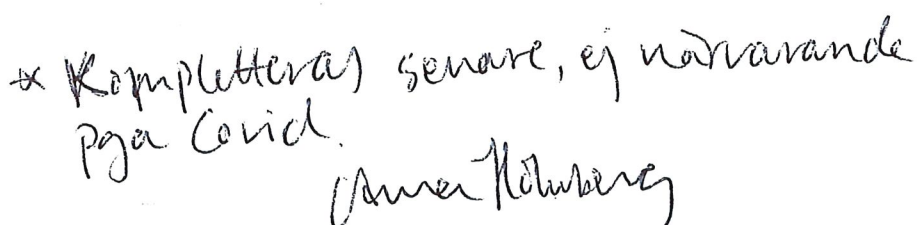 * Kompletteras senare, ej närvarande
pga Covid.
Anna Holmberg